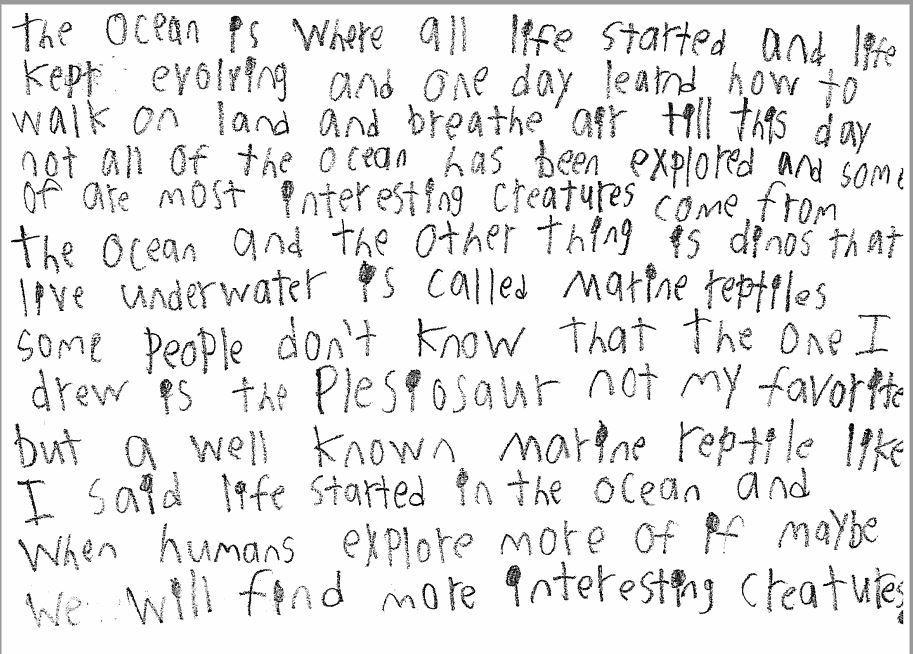 the Ocean is Where all life started and life
kept evolving and one day learnd how to
walk on land and breathe air till this day
not all of the ocean has been explored and some
of are most interesting creatures come from
the ocean and the other thing is dinos that
live underwater is called marine reptiles
some people don't know that the one I
drew is the Plesiosaur not my favorite
but a well known marine reptile like
I said life started in the ocean and
when humans explore more of it maybe
we will find more interesting creatures